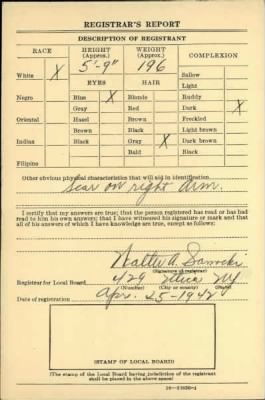 REGISTRAR'S REPORT
DESCRIPTION OF REGISTRANT
RACE HEIGHT (Approx.) WEIGHT (Approx.) COMPLEXION
5'-9" 196
White X EYES HAIR Sallow
Light
Negro Blue X Blonde Ruddy
Gray Red Dark X
Oriental Hazel Brown Freckled
Brown Black Light brown
Indian Black Gray X Dark brown
Bald Black
Filipino
Other obvious physical characteristics that will aid in identification
Scar on right Arm.
I certify that my answers are true; that the person registered has read or has had
to him his own answers; that I have witnessed his signature or mark and that
all of his answers of which I have knowledge are true, except as follows:
Walter A.
(Signature of registrar)
Registrar for Local Board 429 Utica NY
(Number) (City or county)
Date of registration Apr. 25-1942
(STAMP OF LOCAL BOARD)
(The stamp of the Local Board having jurisdiction of the registrant
shall be placed in the above space)